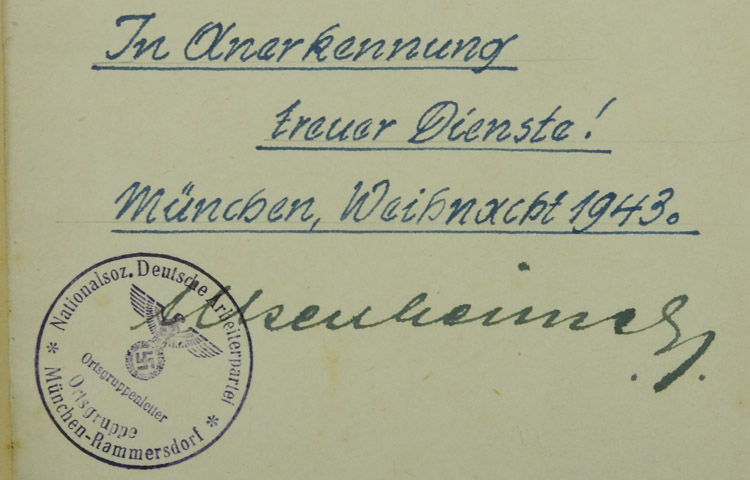 In Anerkennung
treuer Dienste!
München, Weihnacht 1943.
Nationalsoz. Deutsche Arbeiterpartei
Ortsgruppenleiter
Ortsgruppe
* München-Rammersdorf *